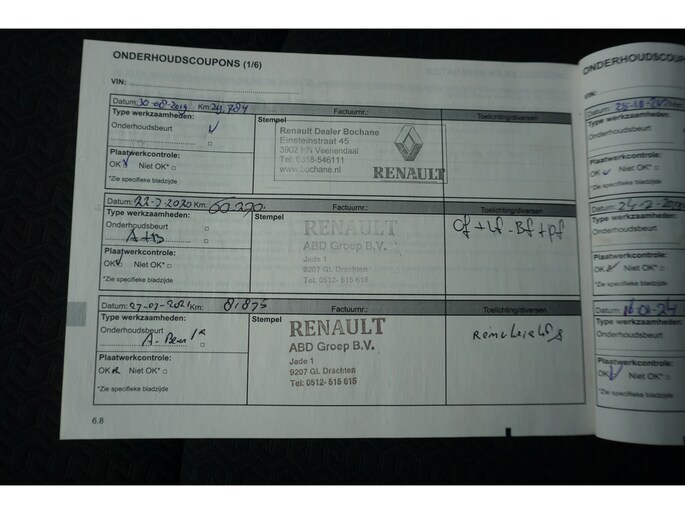 ONDERHOUDSCOUPONS (1/6)
VIN:
Datum: 30-08-2019 Km: 29.784 Factuurnr.: Toelichting/diversen
Type werkzaamheden: Stempel
Onderhoudsbeurt
Renault Dealer Bochane
Einsteinstraat 45
3902 HN Veenendaal
Tel: 0318-546111
www.bochane.nl
RENAULT
Plaatwerkcontrole:
OK Niet OK*
*Zie specifieke bladzijde
Datum: 22-7-2020 Km: 60.270 Factuurnr.: Toelichting/diversen
Type werkzaamheden: Stempel
Onderhoudsbeurt
A+B
RENAULT
ABD Groep B.V.
Jade 1
9207 GL Drachten
Tel: 0512- 515 615
Of + Lf - Bf + pf
Plaatwerkcontrole:
OK Niet OK*
*Zie specifieke bladzijde
Datum: 27-07-2021 Km: 81875 Factuurnr.: Toelichting/diversen
Type werkzaamheden: Stempel
Onderhoudsbeurt
A-Beurt
RENAULT
ABD Groep B.V.
Jade 1
9207 GL Drachten
Tel: 0512- 515 615
Plaatwerkcontrole:
OK Niet OK*
*Zie specifieke bladzijde
6.8
ONDERHOUDSCOUP
VIN:
Datum:
Type werkzaamheden:
Onderhoudsbeurt
Plaatwerkcontrole:
OK Niet OK*
*Zie specifieke bladzijde
Datum:
Type werkzaamheden:
Onderhoudsbeurt
Plaatwerkcontrole:
OK Niet OK*
*Zie specifieke bladzijde
Datum: 16-01-24
Type werkzaamheden:
Onderhoudsbeurt
Plaatwerkcontrole:
OK Niet OK*
*Zie specifieke bladzijde